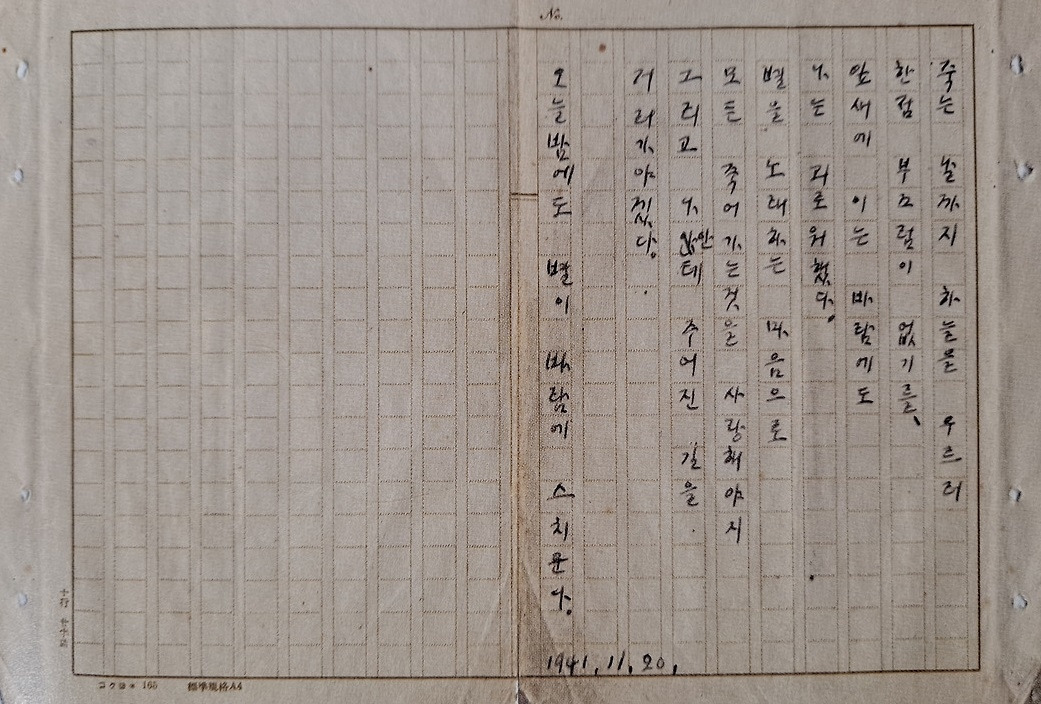 No.
죽는 날까지 하늘을 우르러
한점 부끄럼이 없기를、
잎새에 이는 바람에도
나는 괴로워했다.
별을 노래하는 마음으로
모든 죽어가는것을 사랑해야지
그리고 나안테 주어진 길을
거러가야겠다.
오늘밤에도 별이 바람에 스치운다.
1941.11.20.
コクヨ 165 標準規格A4